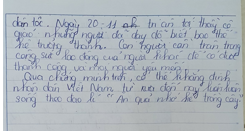 dân tộc. Ngày 20-11 tri ân tới thầy cô
giáo những người đã dạy dỗ biết bao thế
hệ trưởng thành. Con người cần trân trọng
công sức lao động của người khác để có được
thành công và mọi người yêu mến.
Qua chứng minh trên, có thể khẳng định
nhân dân Việt Nam từ xưa đến nay luôn luôn
sống theo đạo lí "Ăn quả nhớ kẻ trồng cây"